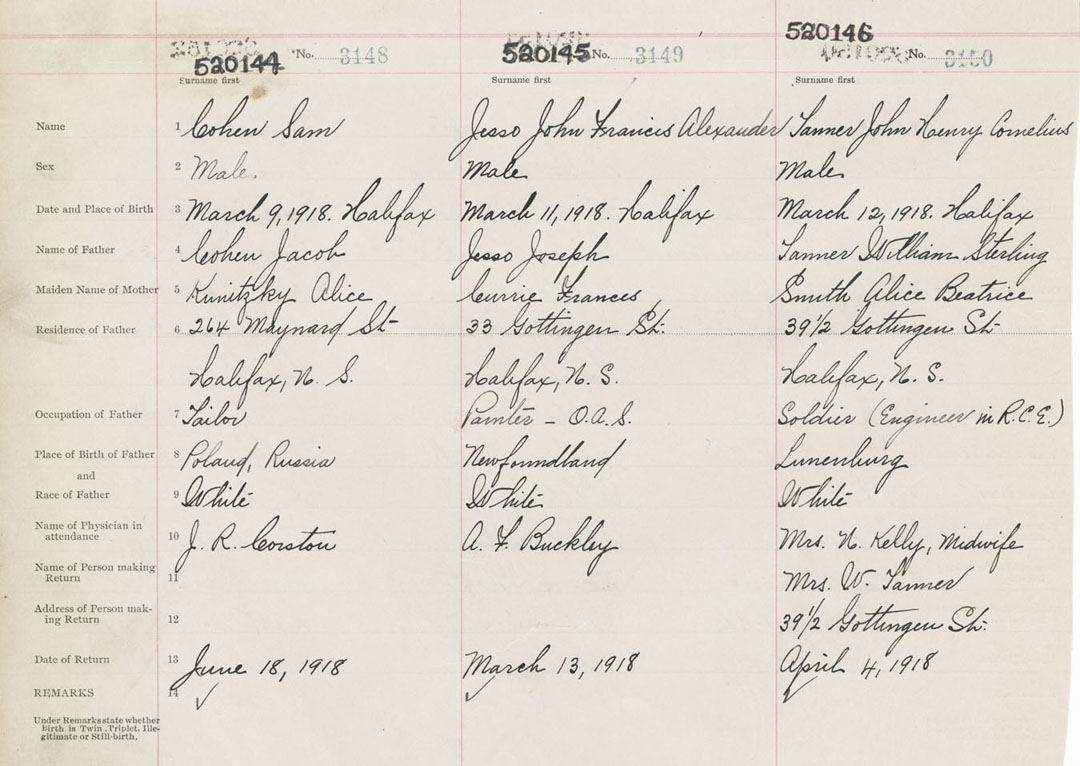 520144 No. 3148 520145 No. 3149 520146 No. 3150
Surname first Surname first Surname first
Name 1 Cohen Sam Jesso John Francis Alexander Tanner John Henry Cornelius
Sex 2 Male. Male Male
Date and Place of Birth 3 March 9, 1918. Halifax March 11, 1918. Halifax March 12, 1918. Halifax
Name of Father 4 Cohen Jacob Jesso Joseph Tanner William Sterling
Maiden Name of Mother 5 Kunitzky Alice Currie Frances Smith Alice Beatrice
Residence of Father 6 264 Maynard St 33 Gottingen St. 39 1/2 Gottingen St.
Halifax, N. S. Halifax, N. S. Halifax, N. S.
Occupation of Father 7 Tailor Painter - O.A.S. Soldier (Engineer in R.C.E.)
Place of Birth of Father 8 Poland, Russia Newfoundland Lunenburg
and
Race of Father 9 White White White
Name of Physician in
attendance 10 J. R. Corston A. F. Buckley Mrs. N. Kelly, Midwife
Name of Person making
Return 11 Mrs. W. Tanner
Address of Person mak-
ing Return 12 39 1/2 Gottingen St.
Date of Return 13 June 18, 1918 March 13, 1918 April 4, 1918
REMARKS 14
Under Remarks state whether
Birth is Twin, Triplet, Ille-
gitimate or Still-birth.